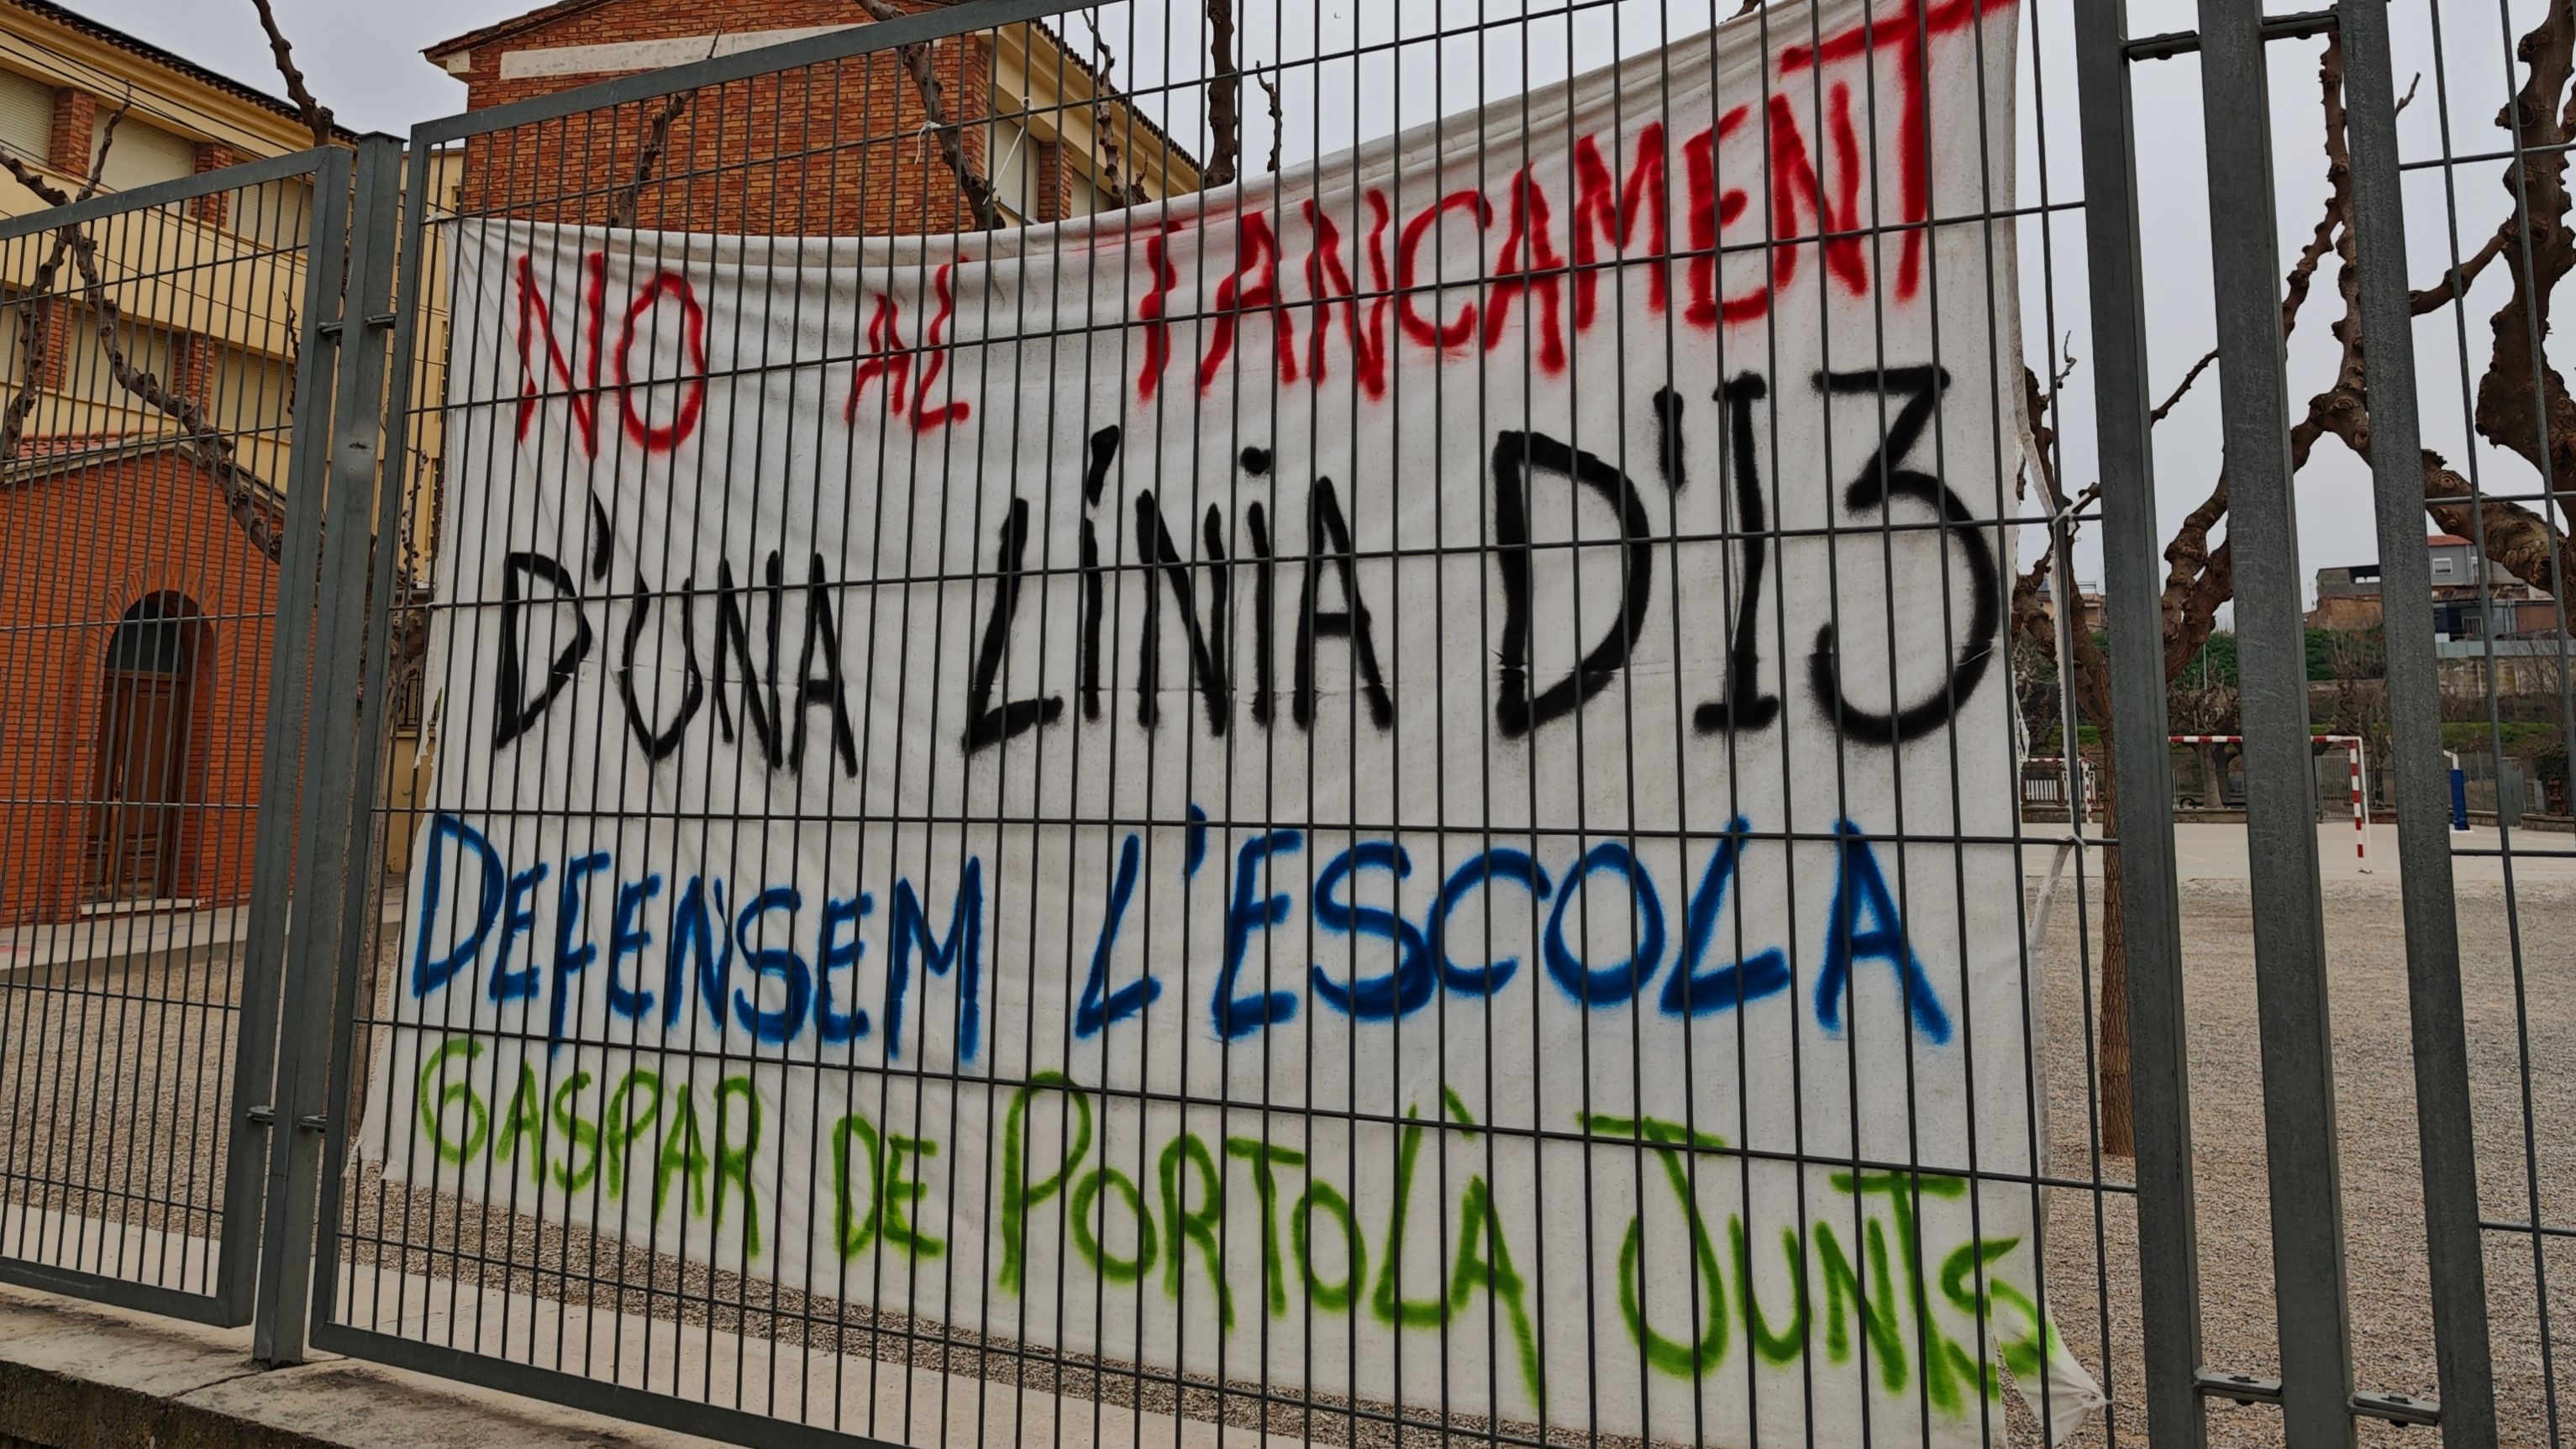 NO AL TANCAMENT
D'UNA LíNiA D'I3
DEFENSEM L'ESCOLA
GASPAR DE PORTOLÀ JUNTS